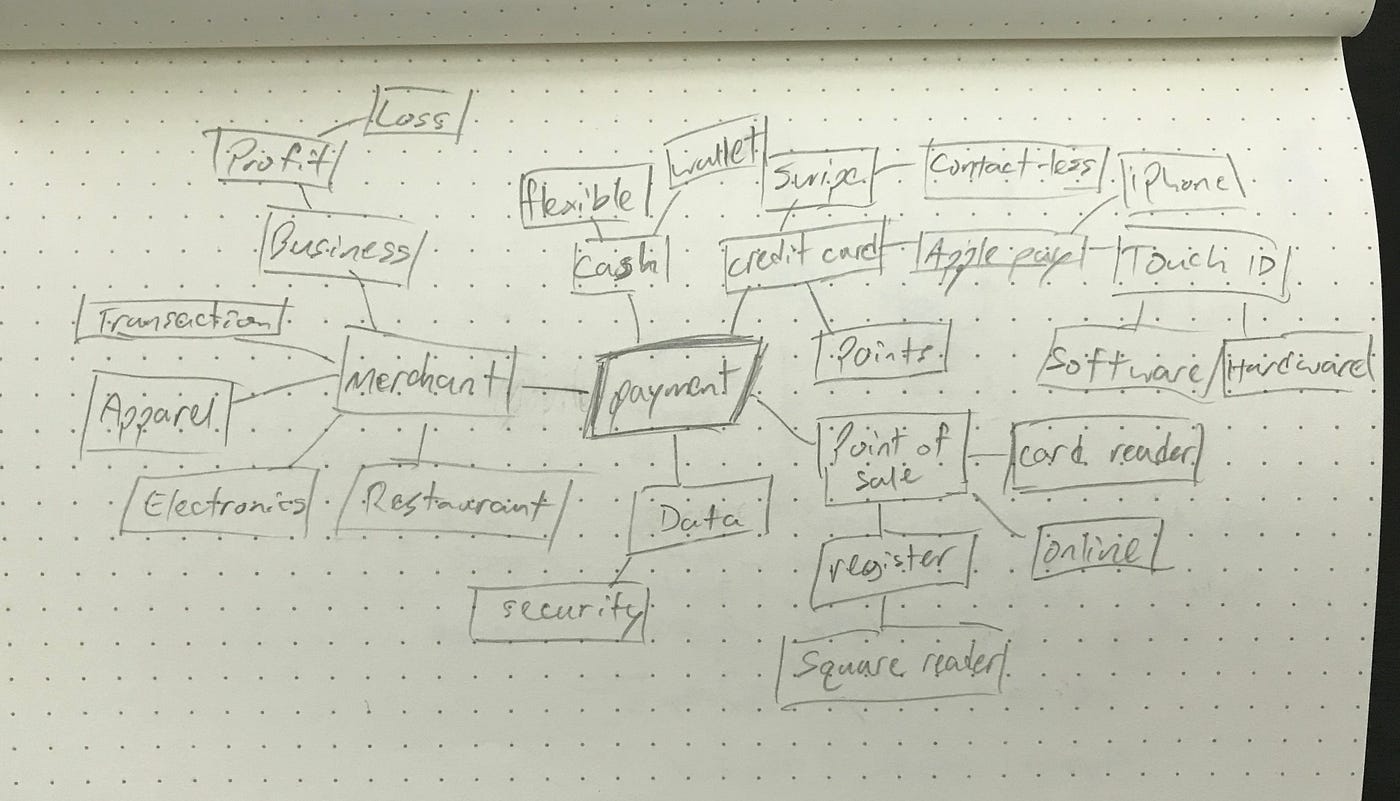 Loss
Profit
wallet
Swipe
Contact-less
iphone
flexible
Business
Cash
credit card
Apple pay
Touch ID
Transaction
Merchant
payment
Points
Software
Hardware
Apparel
Point of
sale
card reader
Electronics
Restaurant
Data
register
online
security
Square reader